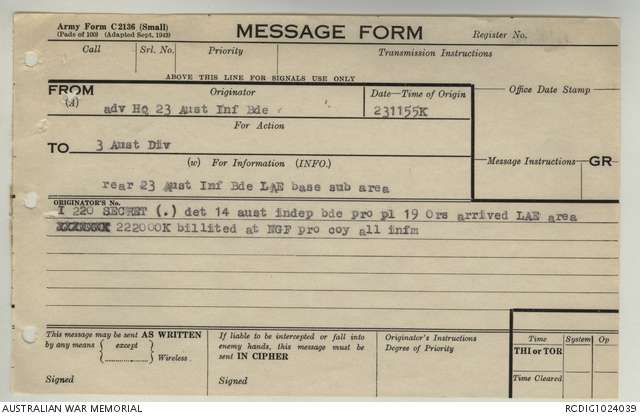 Army Form C2136 (Small)
(Pads of 100) (Adapted Sept. 1943)
MESSAGE FORM
Register No.
Call Srl. No. Priority Transmission Instructions
ABOVE THIS LINE FOR SIGNALS USE ONLY
FROM
(A)
Originator
Date—Time of Origin
Office Date Stamp
adv HQ 23 Aust Inf Bde
231155K
For Action
TO
3 Aust Div
(w) For Information (INFO.)
Message Instructions GR
rear 23 Aust Inf Bde LAE base sub area
ORIGINATOR'S No.
I 220 SECRET (.) det 14 aust indep bde pro pl 19 Ors arrived LAE area
222000K billited at NGF pro coy all infm
This message may be sent AS WRITTEN
by any means { except
Wireless.
Signed
If liable to be intercepted or fall into
enemy hands, this message must be
sent IN CIPHER
Signed
Originator's Instructions
Degree of Priority
Time System Op
THI or TOR
Time Cleared
AUSTRALIAN WAR MEMORIAL
RCDIG1024039